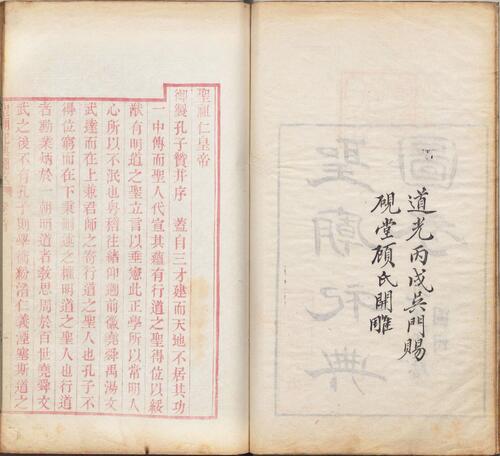 道光丙戌吳門賜
硯堂顧氏開雕
聖祖仁皇帝
御製孔子贊并序 蓋自三才建而天地不居其功
一中傳而聖人代宣其蘊有行道之聖得位以綏
猷有明道之聖立言以垂憲此正學所以常明人
心所以不泯也粵稽往緒仰溯前徽堯舜禹湯文
武達而在上兼君師之寄行道之聖人也孔子不
得位窮而在下秉刪述之權明道之聖人也行道
者勳業炳於一朝明道者敎思周於百世堯舜文
武之後不有孔子則學術紛淆仁義湮塞斯道之